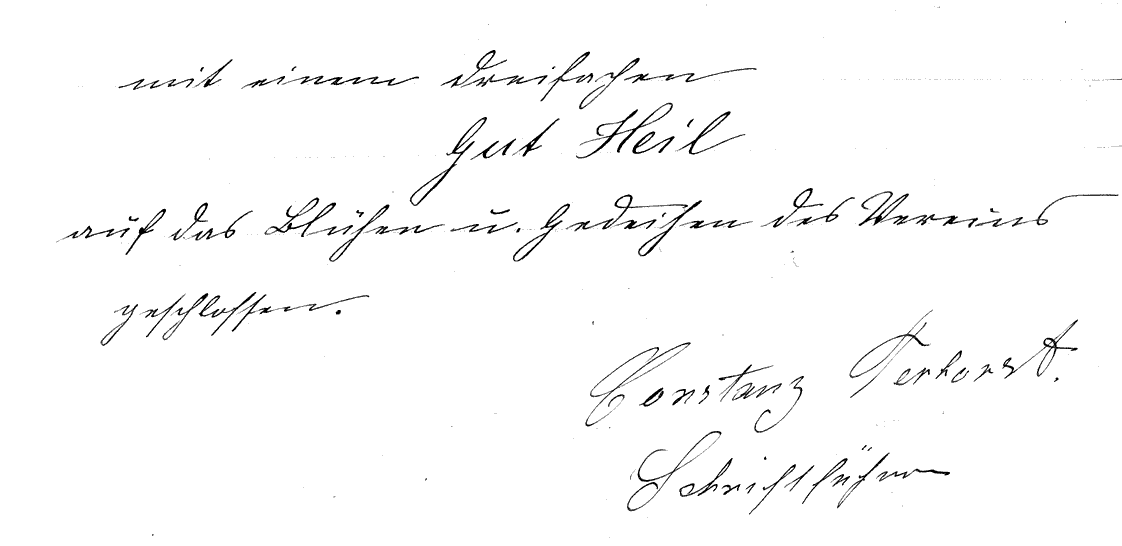 mit einem dreifachen
Gut Heil
auf das Blühen u. Gedeihen des Vereins
geschlossen.
Constanz Terhorst.
Schriftführer